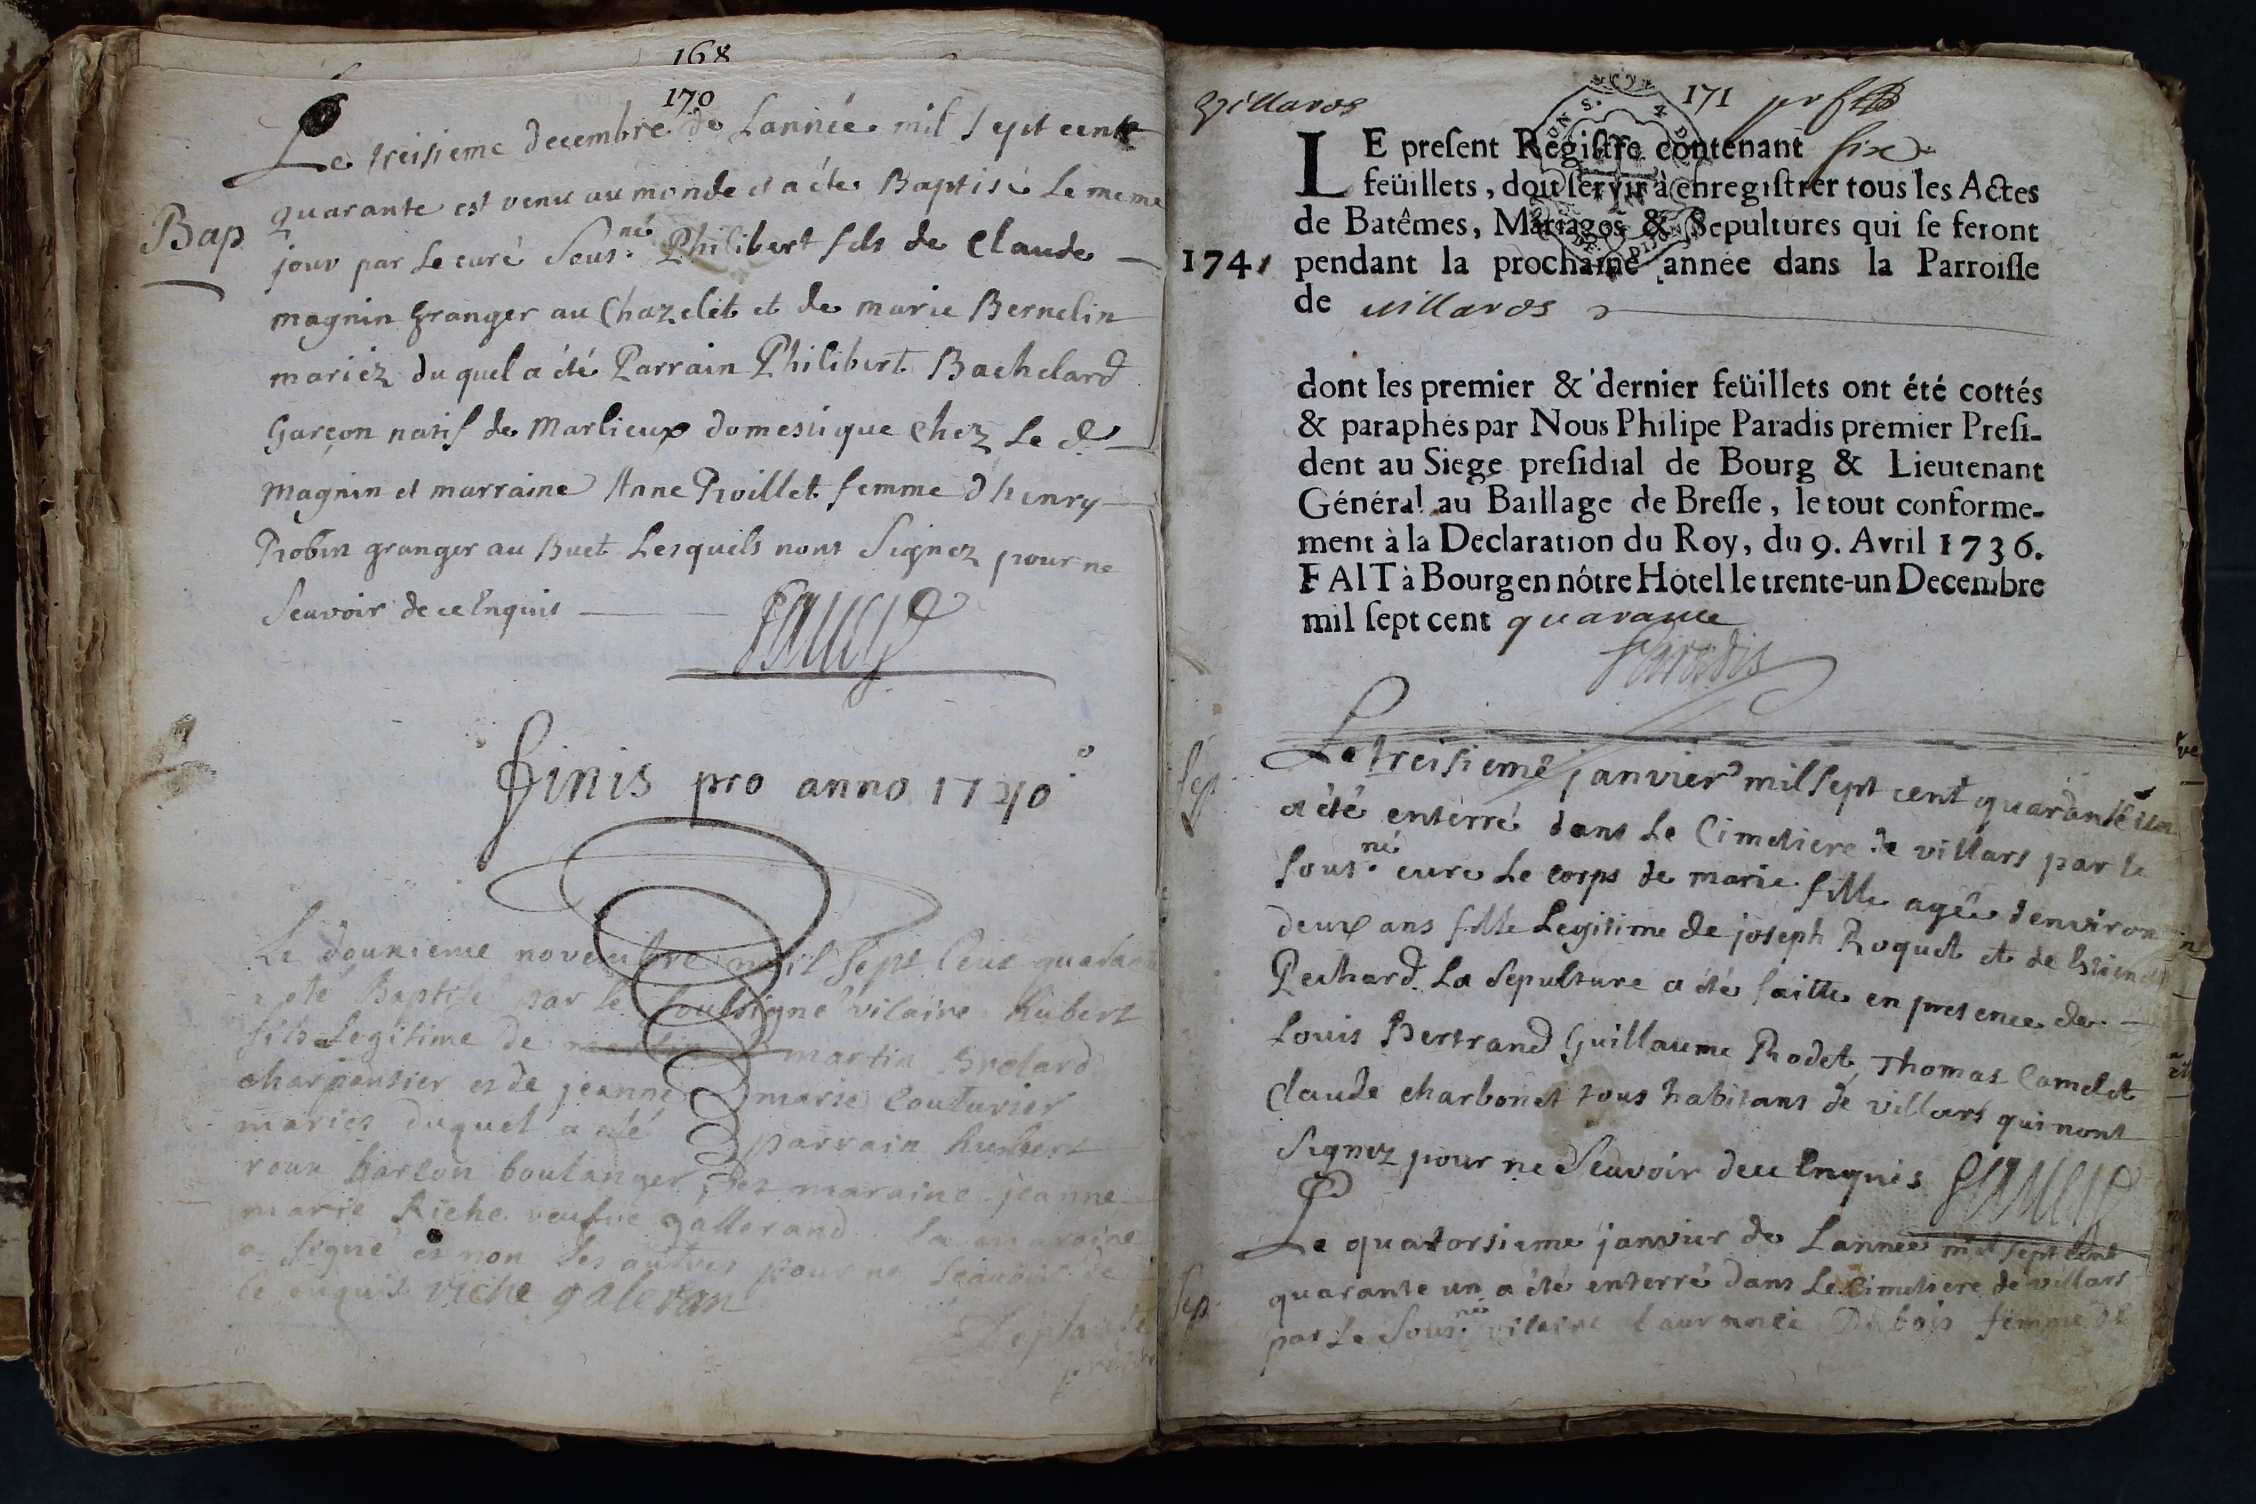 168
170
Le treisieme decembre de Lannée mil sept cent
quarante est venu au monde et a été Baptisé Le meme
Bap
jour par Le curé Sous.né Philibert fils de Claude
magnin Granger au Chazelet et de marie Bernelin
mariéz duquel a été Parrain Philibert Bachelard
Garçon natif de Marlieux domestique chez Le d.
Magnin et marraine Anne Roillet femme d'henry
Robin granger au Buet Lesquels nont Signez pour ne
Scavoir de ce Enquis
finis pro anno 1740
Le dounieme novembre mil Sept Cent quarante
a eté Baptisé par le Soubsigné vicaire hubert
fils Legitime de martin Brelard
charpentier et de jeanne marie Couturier
mariés duquel a eté parrain hubert
roux garcon boulanger, et maraine jeanne
marie Riche veufve gallerand La maraine
a signé et non les autres pour ne Scavoir de
ce enquis riche galeran
villars
171
LE present Registre contenant six
feüillets, doit servir à enregistrer tous les Actes
de Batêmes, Mariages & Sepultures qui se feront
1741 pendant la prochaine année dans la Parroisse
de villars
dont les premier & dernier feüillets ont été cottés
& paraphés par Nous Philipe Paradis premier Presi-
dent au Siege presidial de Bourg & Lieutenant
Général au Baillage de Bresse, le tout conforme-
ment à la Declaration du Roy, du 9. Avril 1736.
FAIT à Bourg en nôtre Hôtel le trente-un Decembre
mil sept cent quarante
Paradis
Sep
Le treisieme janvier mil Sept cent quarante un
a été enterré dans Le Cimetiere de villars par le
Sous.né curé Le corps de marie fille agée denviron
deux ans fille Legitime de joseph Roquet et de
Pechard La Sepulture a été faitte en presence de
Louis Bertrand Guillaume Rodet, Thomas Camelot
Claude charbonet tous habitans de villars qui nont
Signez pour ne Scavoir de ce Enquis
Le quatorsieme janvier de Lannee mil sept cent
quarante un a été enterré dans Le Cimetiere de villars
Sep.
par Le Sous.né vicaire Dubois femme de